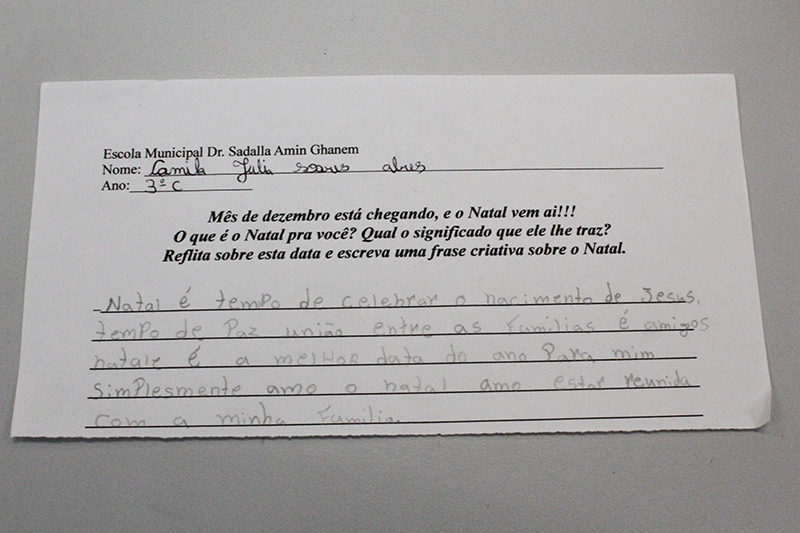 Escola Municipal Dr. Sadalla Amin Ghanem
Nome: Camila Julia soares alves
Ano: 3º C
Mês de dezembro está chegando, e o Natal vem ai!!!
O que é o Natal pra você? Qual o significado que ele lhe traz?
Reflita sobre esta data e escreva uma frase criativa sobre o Natal.
Natal é tempo de celebrar o nacimento de Jesus,
tempo de Paz união entre as Familias é amigos
natale é a melhor data do ano Para mim
Simplesmente amo o natal amo estar reunida
com a minha Familia